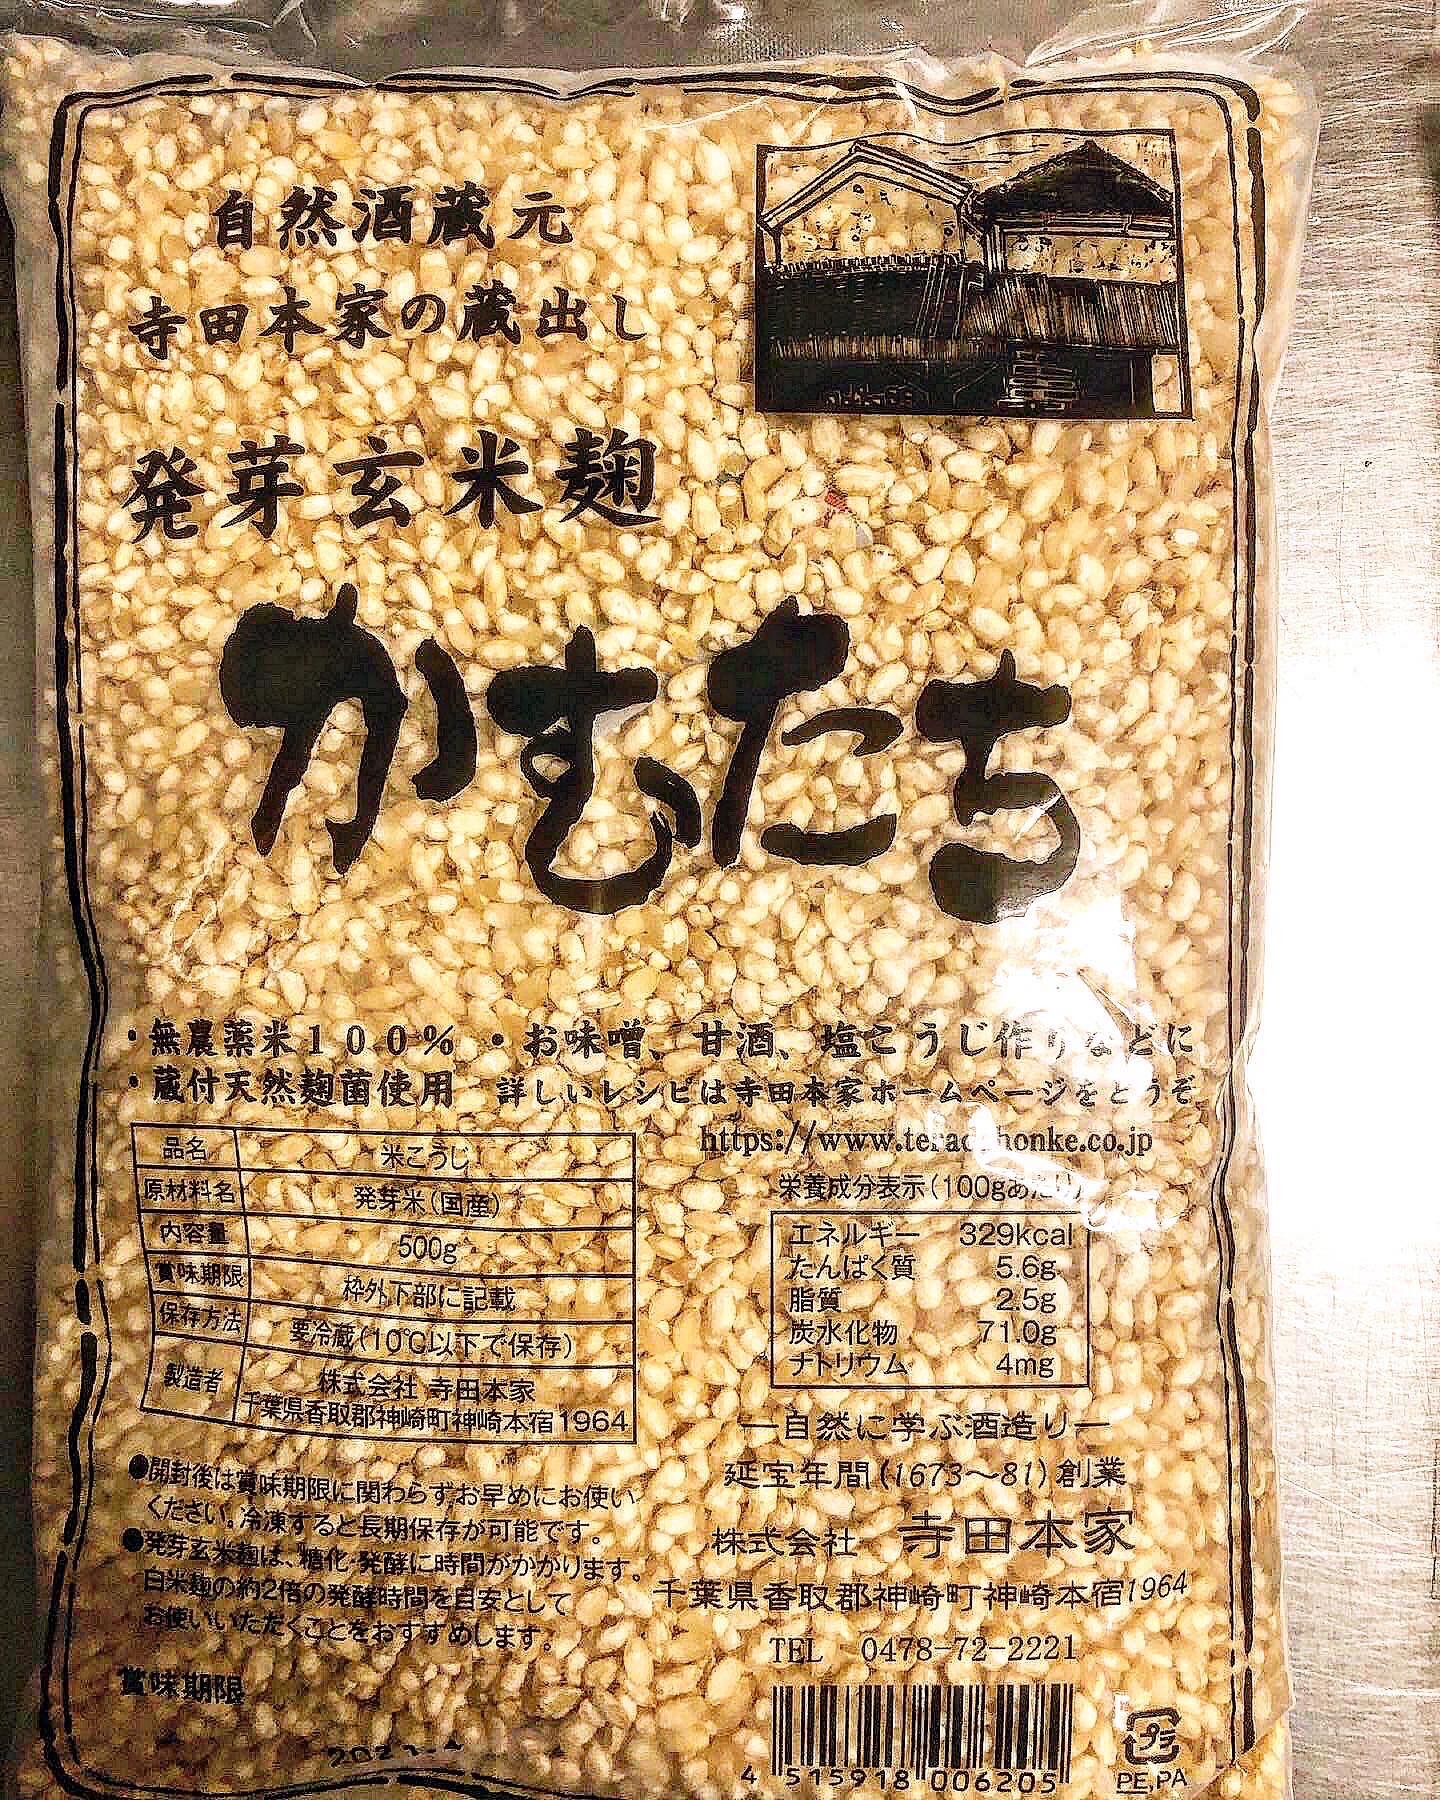 自然酒蔵元
寺田本家の蔵出し
発芽玄米麹
かむたち
・無農薬米100%
・蔵付天然麹菌使用
・お味噌、甘酒、塩こうじ作りなどに
詳しいレシピは寺田本家ホームページをどうぞ
https://www.teradahonke.co.jp
品名 米こうじ
原材料名 発芽米(国産)
内容量 500g
賞味期限 枠外下部に記載
保存方法 要冷蔵(10℃以下で保存)
製造者 株式会社 寺田本家
千葉県香取郡神崎町神崎本宿1964
●開封後は賞味期限に関わらずお早めにお使い
ください。冷凍すると長期保存が可能です。
●発芽玄米麹は、糖化・発酵に時間がかかります。
白米麹の約2倍の発酵時間を目安として
お使いいただくことをおすすめします。
賞味期限
栄養成分表示(100gあたり)
エネルギー 329kcal
たんぱく質 5.6g
脂質 2.5g
炭水化物 71.0g
ナトリウム 4mg
―自然に学ぶ酒造り―
延宝年間(1673〜81)創業
株式会社 寺田本家
千葉県香取郡神崎町神崎本宿1964
TEL 0478-72-2221
4 515918 006205
プラ
PE,PA